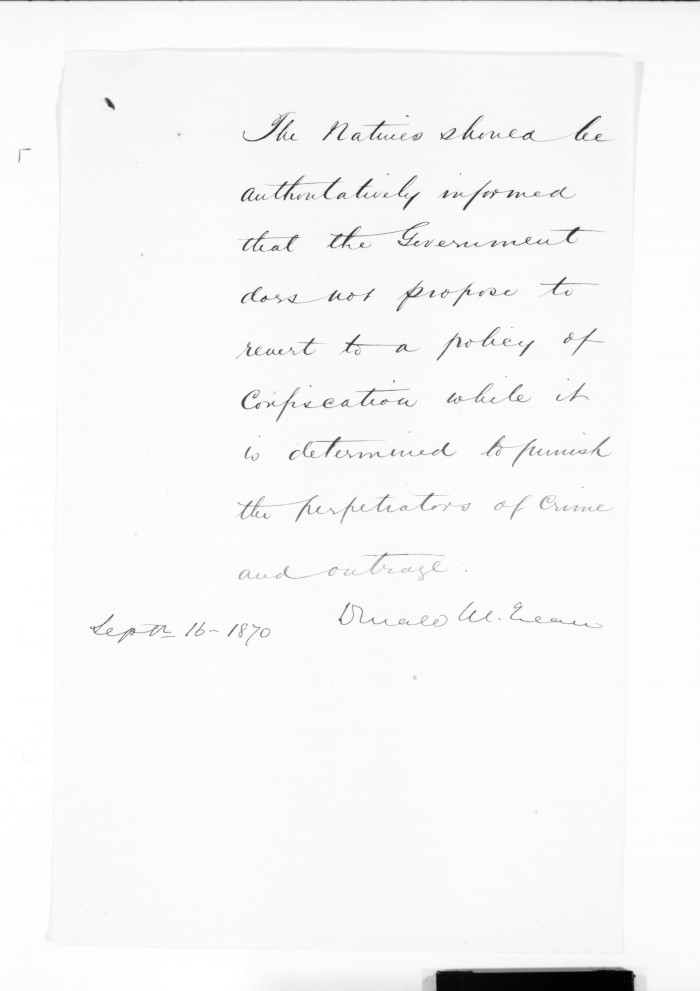 The Natives should be
authoritatively informed
that the Government
does not propose to
revert to a policy of
Confiscation while it
is determined to punish
the perpetrators of Crime
and outrage.
Donald McLean
Septr 16 - 1870